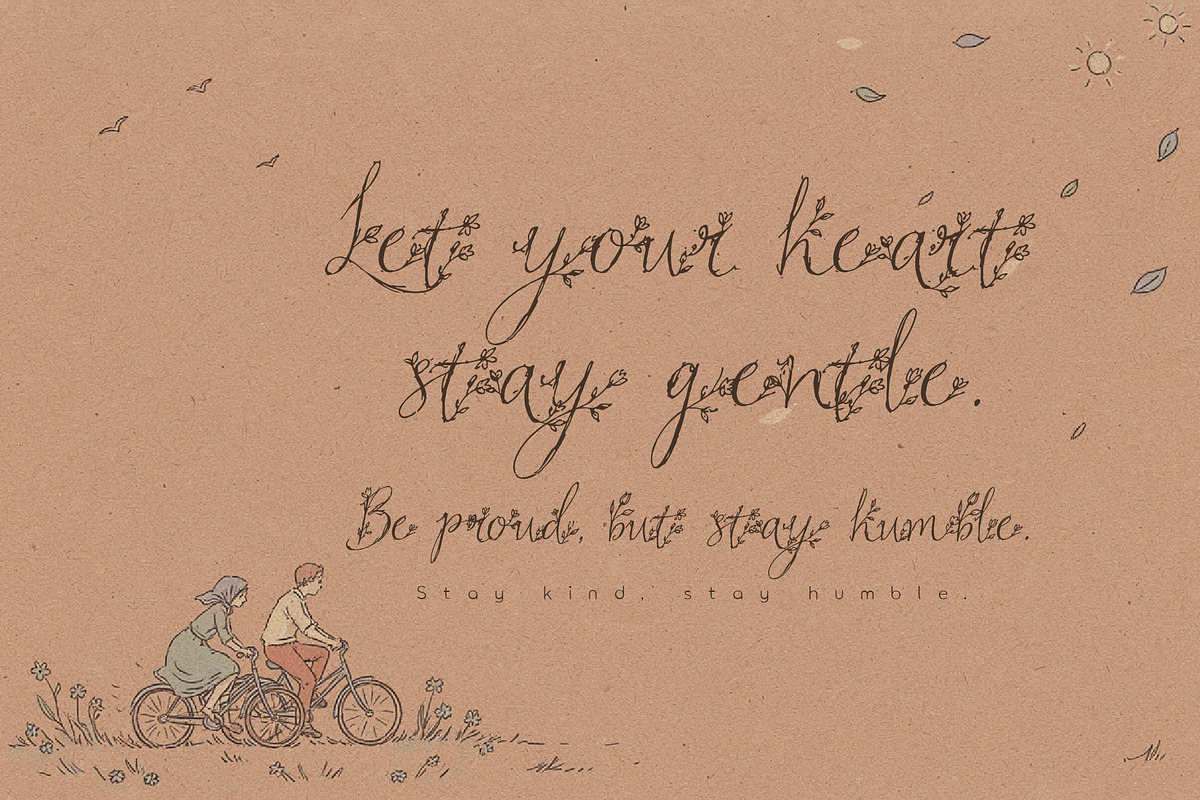 Let your heart
stay gentle.
Be proud, but stay humble.
Stay kind, stay humble.